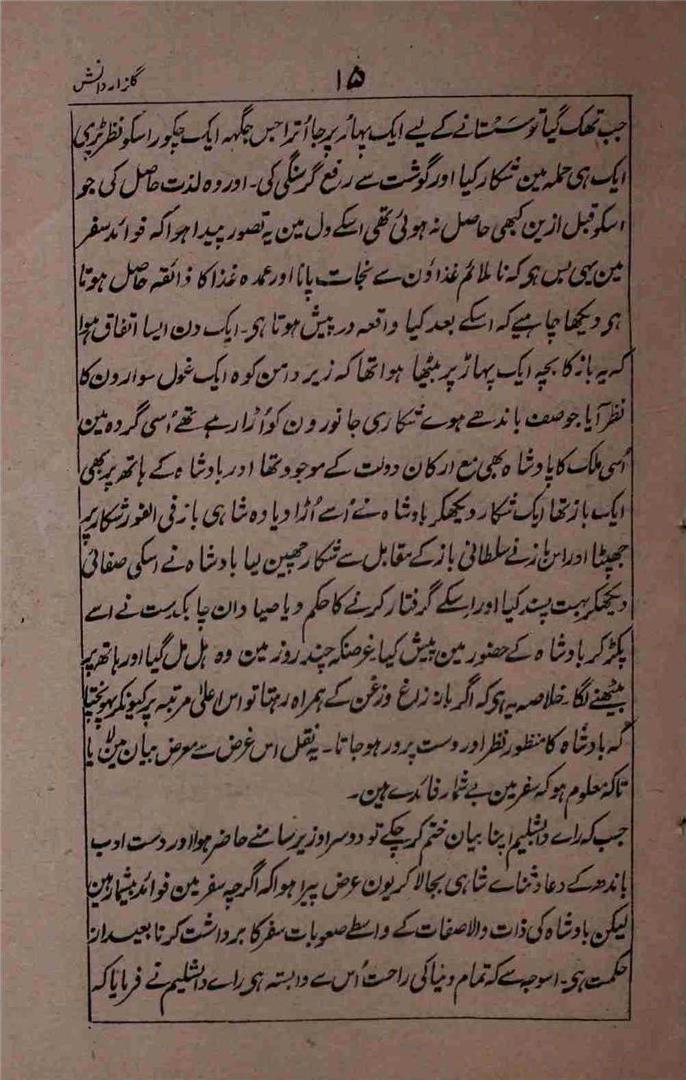 گلزار دانش
۱۵
جب تھک گیا تو سستانے کے لیے ایک پہاڑ پر جا اُترا جس جگہہ ایک چکور اسکو نظر پڑی
ایک ہی حملہ مین شکار کیا اور گوشت سے رفع گرسنگی کی۔ اور وہ لذت حاصل کی جو
اسکو قبل ازین کبھی حاصل نہ ہوئی تھی اسکے دل مین یہ تصور پیدا ہوا کہ فوائد سفر
مین یہی بس ہو کہ نا ملائم غذاؤن سے نجات پانا اور عمدہ غذا کا ذائقہ حاصل ہوتا
ہی دیکھا چاہیے کہ اسکے بعد کیا واقعہ درپیش ہوتا ہی۔ ایک دن ایسا اتفاق ہوا
کہ یہ باز کا بچہ ایک پہاڑ پر بیٹھا ہوا تھا کہ زیر دامن کوہ ایک غول سوارون کا
نظر آیا جو صف باندھے ہوے شکاری جانورون کو اُڑا رہے تھے اُسی گروہ مین
اُسی ملک کا پادشاہ بھی مع ارکان دولت کے موجود تھا اور بادشاہ کے ہاتھ پر بھی
ایک باز تھا ایک شکار دیکھکر بادشاہ نے اُسے اُڑا دیا وہ شاہی باز فی الفور شکار پر
جھپٹا اور اس باز نے سلطانی باز کے مقابل سے شکار چھین لیا بادشاہ نے اسکی صفائی
دیکھکر بہت پسند کیا اور اسکے گرفتار کرنے کا حکم دیا صیادان چابکدست نے اسے
پکڑ کر بادشاہ کے حضور مین پیش کیا غرضکہ چند روز مین وہ ہل مل گیا اور ہاتھ پر
بیٹھنے لگا۔ خلاصہ یہ ہی کہ اگر باز زاغ و زغن کے ہمراہ رہتا تو اس اعلیٰ مرتبہ پر کیونکر پہونچتا
کہ بادشاہ کا منظور نظر اور دست پرور ہو جاتا۔ یہ نقل اس غرض سے معرض بیان مین لایا
تاکہ معلوم ہو کہ سفر مین بے شمار فائدے ہین۔
جب کہ راے دابشلیم اپنا بیان ختم کر چکے تو دوسرا وزیر سامنے حاضر ہوا اور دست ادب
باندھ کے دعا و ثناے شاہی بجا لا کر یون عرض پیرا ہوا کہ اگرچہ سفر مین فوائد بیشمار ہین
لیکن بادشاہ کی ذات والا صفات کے واسطے صعوبات سفر کا برداشت کرنا بعید از
حکمت ہی۔ اسوجہ سے کہ تمام دنیا کی راحت اُس سے وابستہ ہی راے دابشلیم نے فرمایا کہ